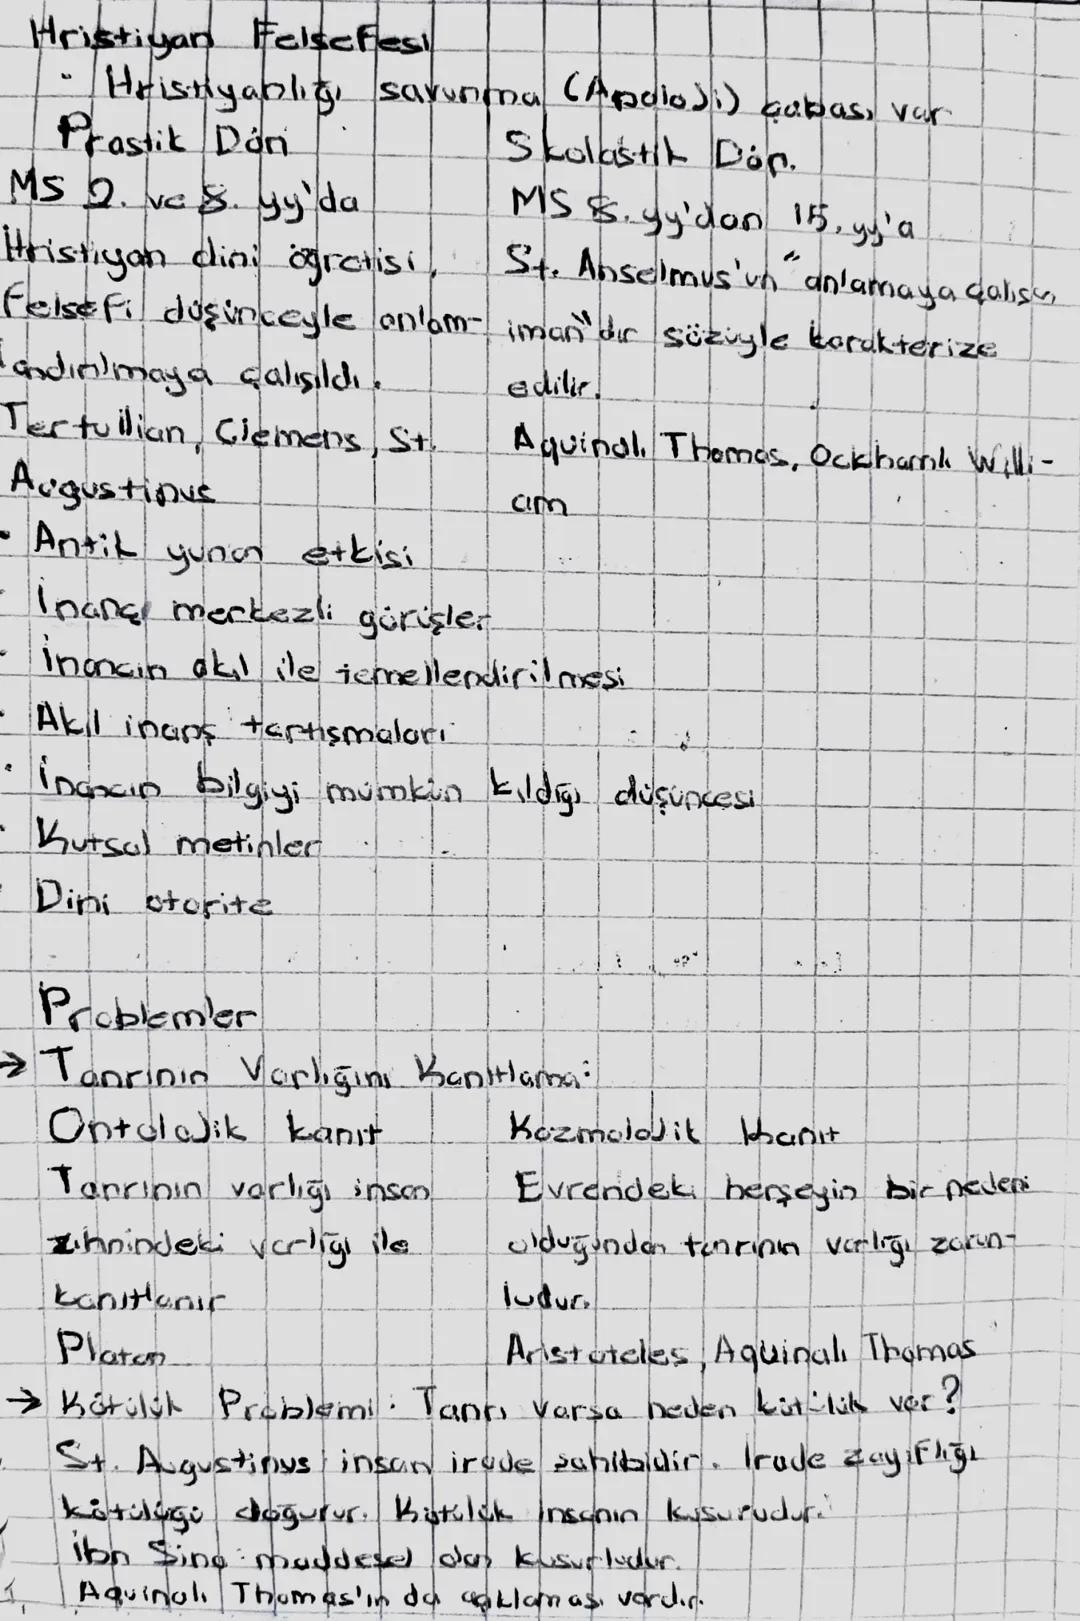 Hristiyan Felsefesi
· Hristiyanlığı savunma (Apoloji) çabası var
Prastik Dön
MS 2. ve 8. yy'da
Hristiyan dini öğretisi,
Felsefi düşünceyle anlam-
landırılmaya çalışıldı.
Tertullian, Clemens, St.
Augustinus
Skolastik Dön.
MS 8. yy'dan 15. yy'a
St. Anselmus'un "anlamaya çalışan
iman"dır sözüyle karakterize
edilir.
Aquinalı Thomas, Ockhamlı Willi-
am
· Antik yunan etkisi
· İnanç merkezli görüşler
· İnancın akıl ile temellendirilmesi
· Akıl inanş tartışmaları
· İnancın bilgiyi mümkün kıldığı düşüncesi
· Kutsal metinler
· Dini otorite
Problemler
→ Tanrının Varlığını Kanıtlama:
Ontolojik kanıt
Tanrının varlığı insan
zihnindeki varlığı ile
kanıtlanır
Platon
Kozmolojik Kanıt
Evrendeki herşeyin bir nedeni
olduğundan tanrının varlığı zorun-
ludur.
Aristoteles, Aquinalı Thomas
→ Kötülük Problemi: Tanrı varsa neden kötülük var?
St. Augustinus insan irade sahibidir. İrade zayıflığı
kötülüğü doğurur. Kötülük insanın kusurudur.
İbn Sina: maddesel olan kusurludur.
Aquinalı Thomas'ın da açıklaması vardır.